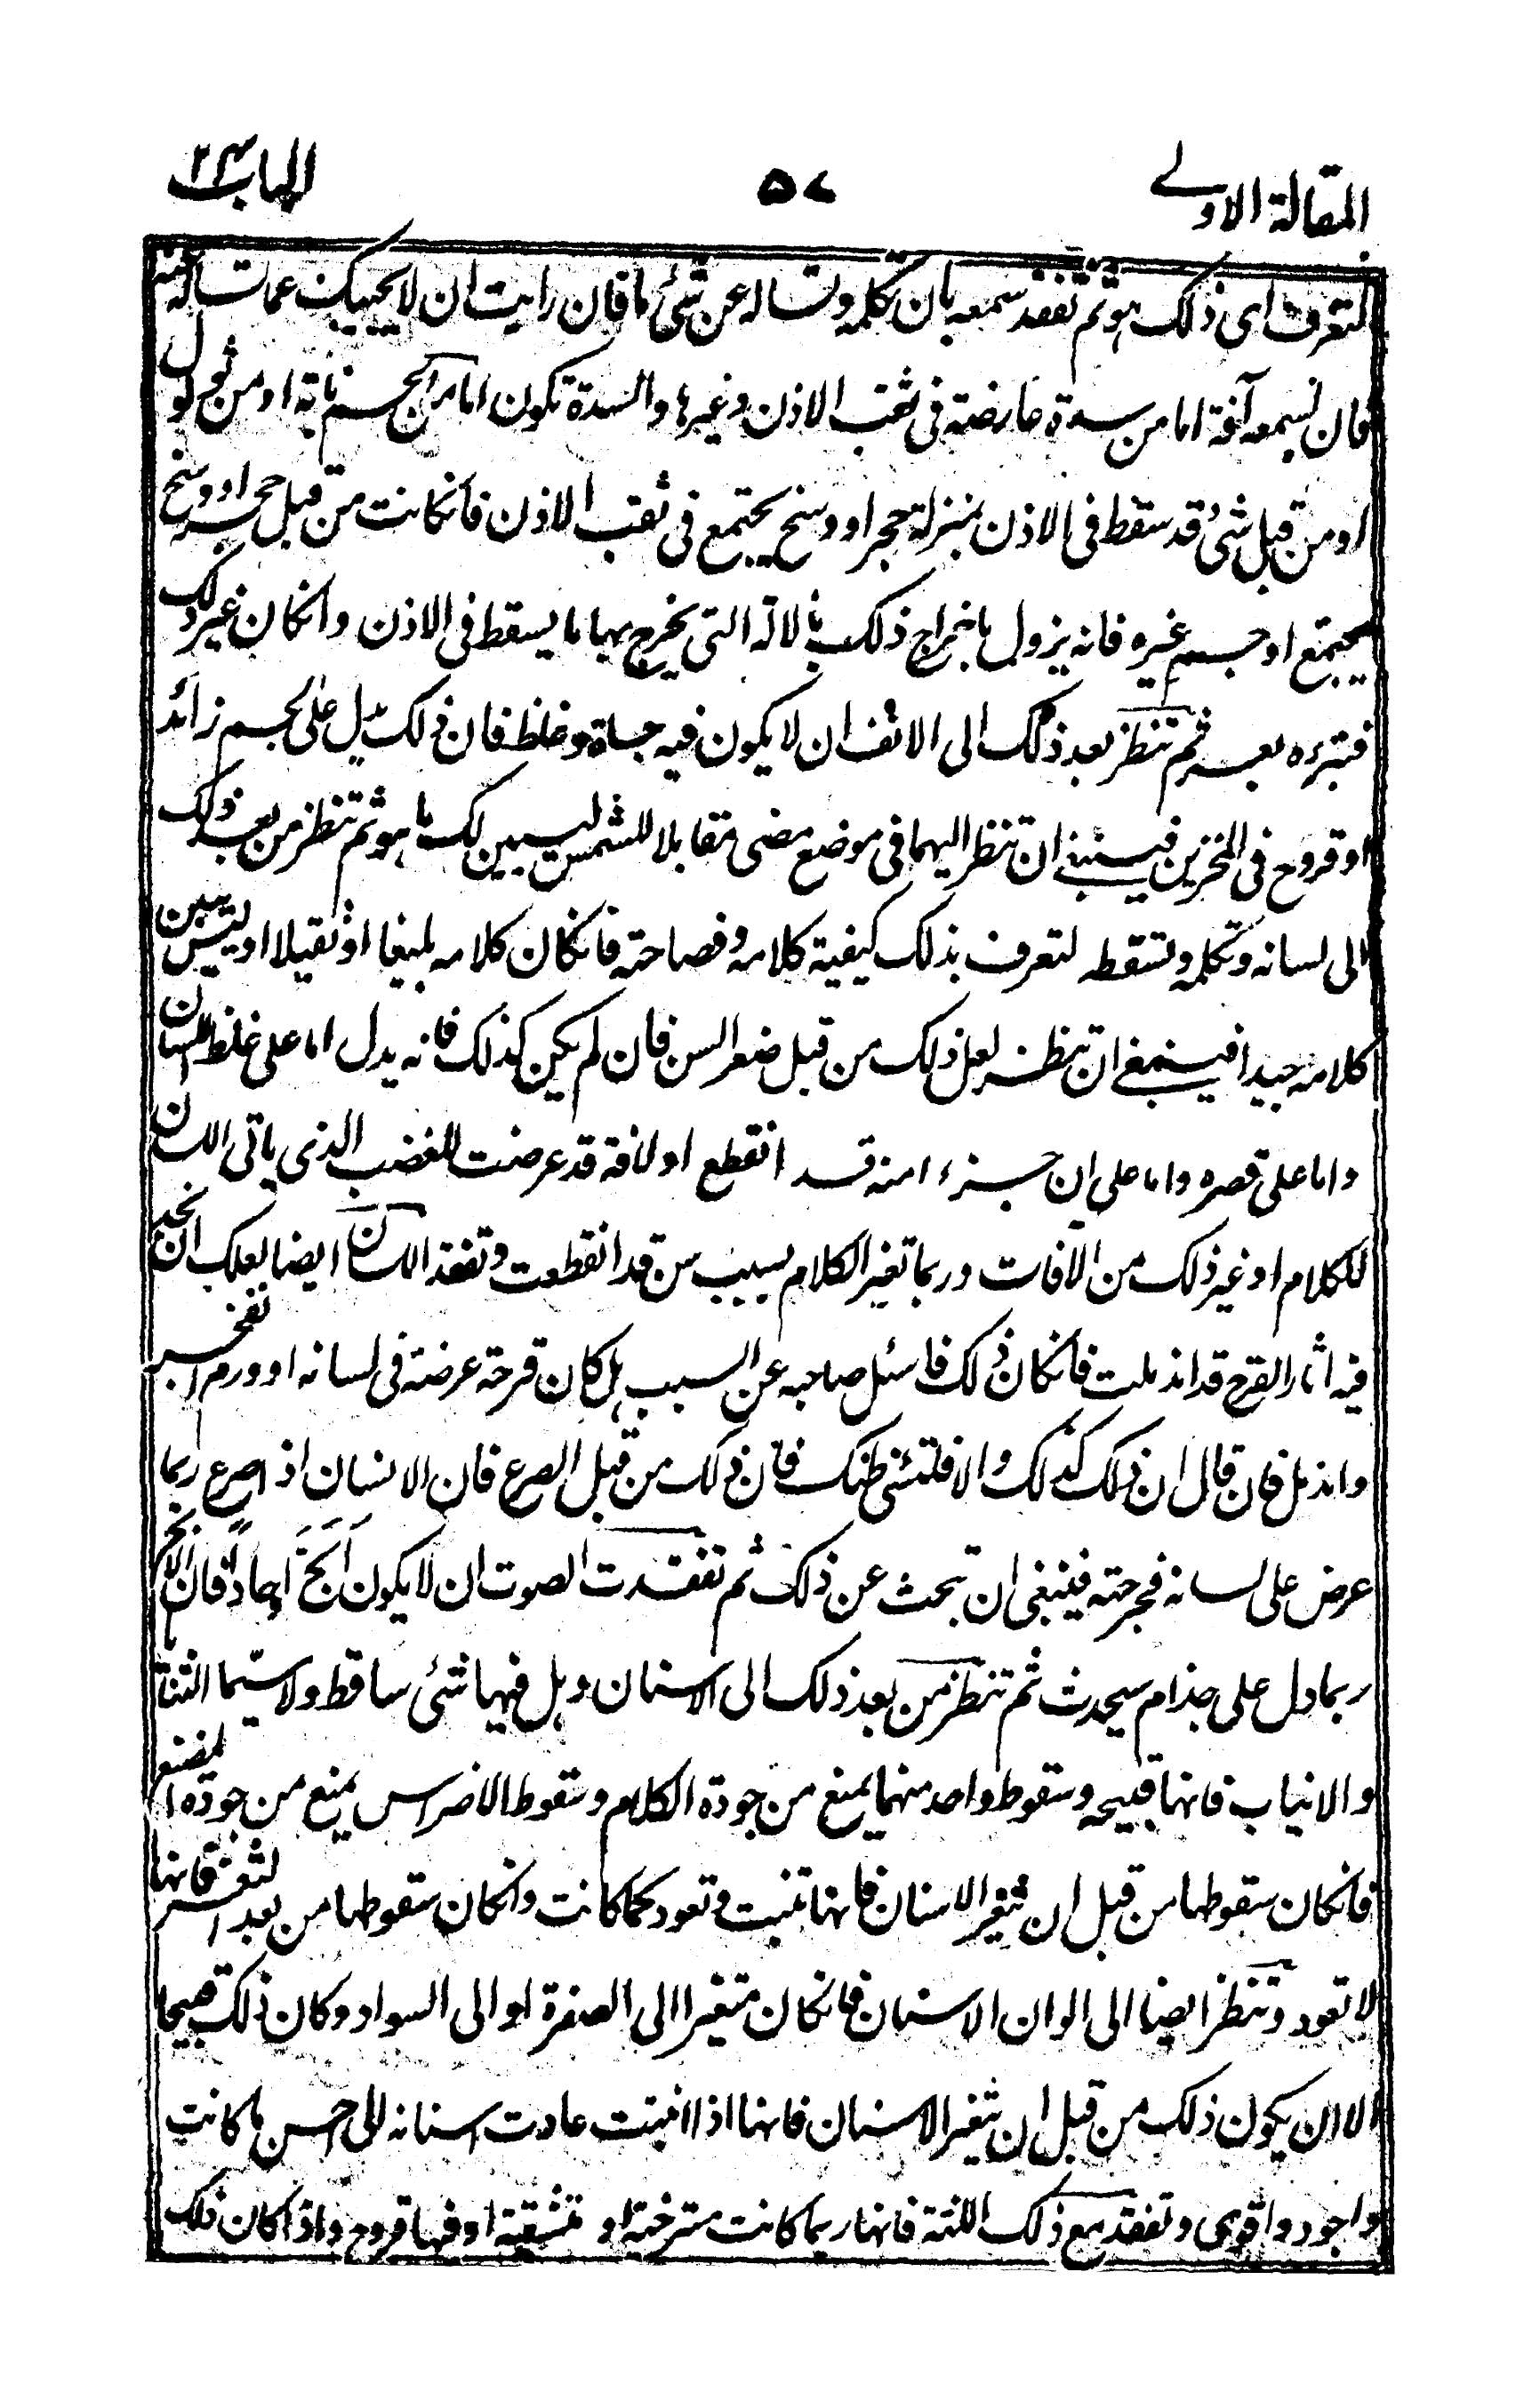 المقالة الاولے ٥٧ الباب ٢٣
لتعرف اى ذلك هو ثم تفقد سمعه بان تكلمه وتساله عن شئ ما فان رايت ان لا يجيبك عما تساله عنه
فان لسمعه آفة اما من سدة عارضة فى ثقب الاذن وغيرها والسدة تكون اما من لحم نابتة او من ثولول
او من قبل شئ قد سقط فى الاذن بمنزلة حجر او وسخ يجتمع فى ثقب الاذن فانكانت من قبل حجر او وسخ
يجتمع او جسم غيره فانه يزول باخراج ذلك بالالة التى يخرج بها ما يسقط فى الاذن وانكان غير ذلك
فتبرءه بعسر ثم تنظر بعد ذلك الى الانف ان لا يكون فيه جساة وغلظ فان ذلك يدل على لحم زائد
او قروح فى المنخرين فينبغے ان تنظر اليهما فى موضع مضى مقابلا للشمس ليبين لك ما هو ثم تنظر من بعد ذلك
الى لسانه وتكلمه وتسقطه لتعرف بذلك كيفية كلامه وفصاحته فانكان كلامه بليغا او ثقيلا او ليس يتبين
كلامه جيدا فينبغے ان تنظر لعل ذلك من قبل صغر السن فان لم يكن كذلك فانه يدل اما على غلظ اللسان
واما على قصره واما على ان جزء امنه قد انقطع او لافة قد عرضت للغضب الذى ياتى اللسان
للكلام او غير ذلك من الآفات وربما تغير الكلام بسبب سن قد انقطعت وتفقد اللسان ايضا لعلك ان تجد
فيه اثار القرح قد اندملت فانكان ذلك فاسئل صاحبه عن السبب هل كان قرحة عرضة فى لسانه او ورم انفجر
واندمل فان قال ان ذلك كذلك والا فلتسئ ظنك فان ذلك من قبل الصرع فان الانسان اذ اصرع ربما
عرض على لسانه فجرحته فينبغى ان تبحث عن ذلك ثم تفقدت الصوت ان لا يكون اَبَحَّ اوحاداً فان الابح
ربما دل على جذام سيحدث ثم تنظر من بعد ذلك الى الاسنان وهل فيها شئ ساقط ولا سيّما الثنايا
والانياب فانها قبيحه وسقوط واحد منهما يمنع من جودة الكلام وسقوط الاضراس يمنع من جودة المضغ
فانكان سقوطها من قبل ان يثغر الاسنان فانها تنبت وتعود كما كانت وانكان سقوطها من بعد الثغر فانها
لا تعود وتنظر ايضا الى الوان الاسنان فانكان متغيرا الى الصفرة او الى السواد وكان ذلك قبيحا
الا ان يكون ذلك من قبل ان يثغر الاسنان فانها اذا انبتت عادت اسنانه الى احسن ما كانت
واجود واقوى وتفقد مع ذلك اللثة فانها ربما كانت مسترخية او متشقيقة او فيها قروح واذا كان ذلك